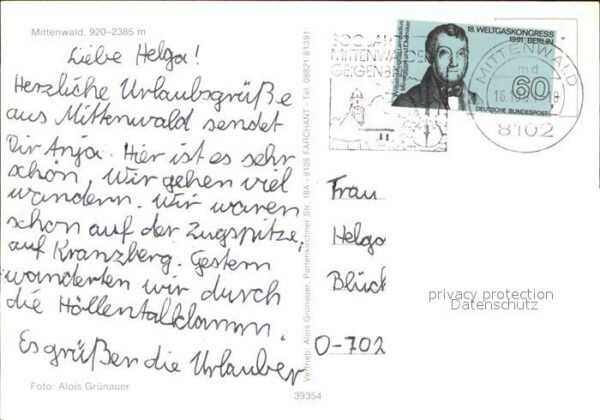 Mittenwald, 920–2385 m
Liebe Helga!
Herzliche Urlaubsgrüße
aus Mittenwald sendet
Dir Anja. Hier ist es sehr
schön. Wir gehen viel
wandern. Wir waren
schon auf der Zugspitze,
auf Kranzberg. Gestern
wanderten wir durch
die Höllentalklamm.
Es grüßen die Urlauber
Foto: Alois Grünauer
39354
Vertrieb: Alois Grünauer, Partenkirchner Str. 18A · 8105 FARCHANT · Tel. 08821/81391
300 JAHRE
MITTENWALDER
GEIGENBAU
18. WELTGASKONGRESS
1991 BERLIN
60
DEUTSCHE BUNDESPOST
MITTENWALD
md
16.
8102
Frau
Helga
Blück
O-702
privacy protection
Datenschutz